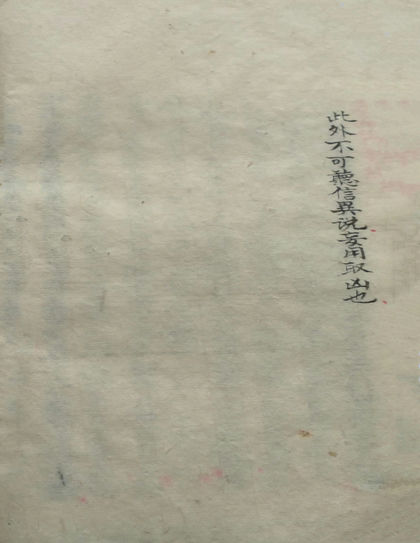 此外不可聽信異说妄用取凶也